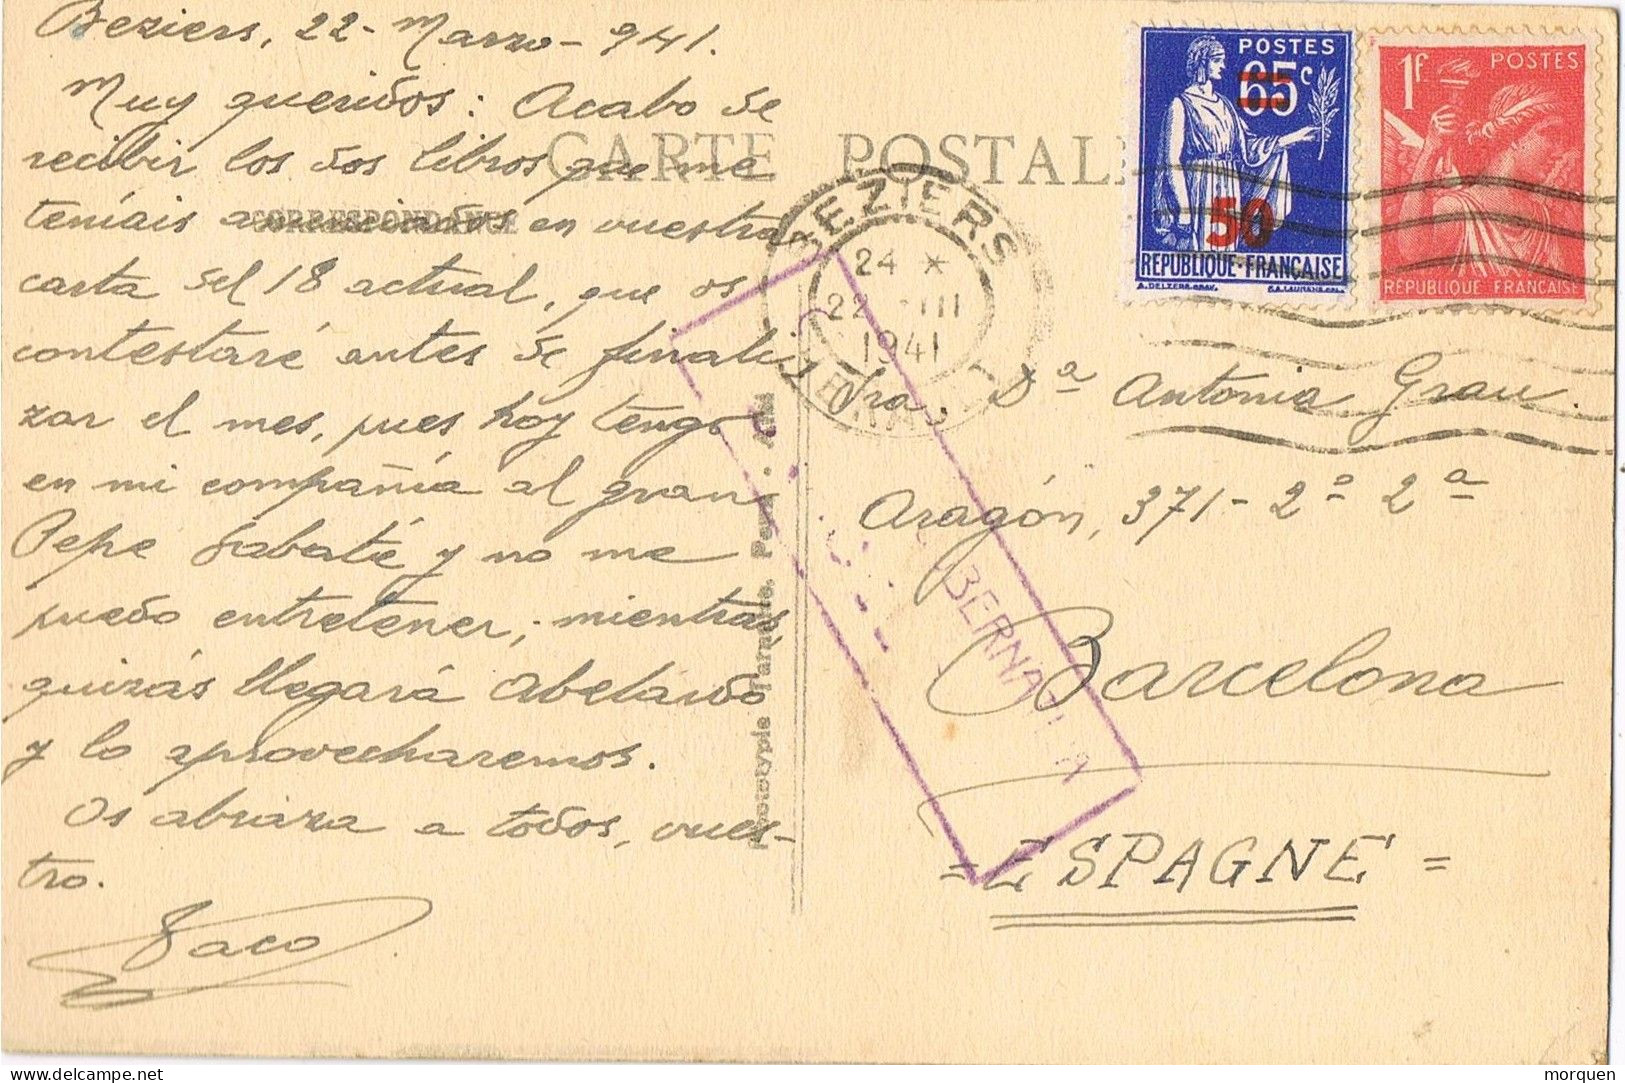 Beziers, 22- Marzo - 941.
Muy queridos: Acabo de
recibir los dos libros que me
teníais anunciados en vuestra
carta del 18 actual, que os
contestaré antes de finali-
zar el mes, pues hoy tengo
en mi compañía al gran
Pepe Sabaté y no me
puedo entretener; mientras,
quizás llegará Abelardo
y lo aprovecharemos.
Os abraza a todos, vues-
tro.
Paco
CARTE POSTALE
CORRESPONDANCE
Phototypie
BEZIERS
24 *
22 -III
1941
HERAULT
POSTES
65c
50
REPUBLIQUE-FRANÇAISE
POSTES
1F
RÉPUBLIQUE FRANÇAISE
Sra. Dª Antonia Grau.
Aragón, 371- 2º 2ª
Barcelona
= ESPAGNE =
morquen